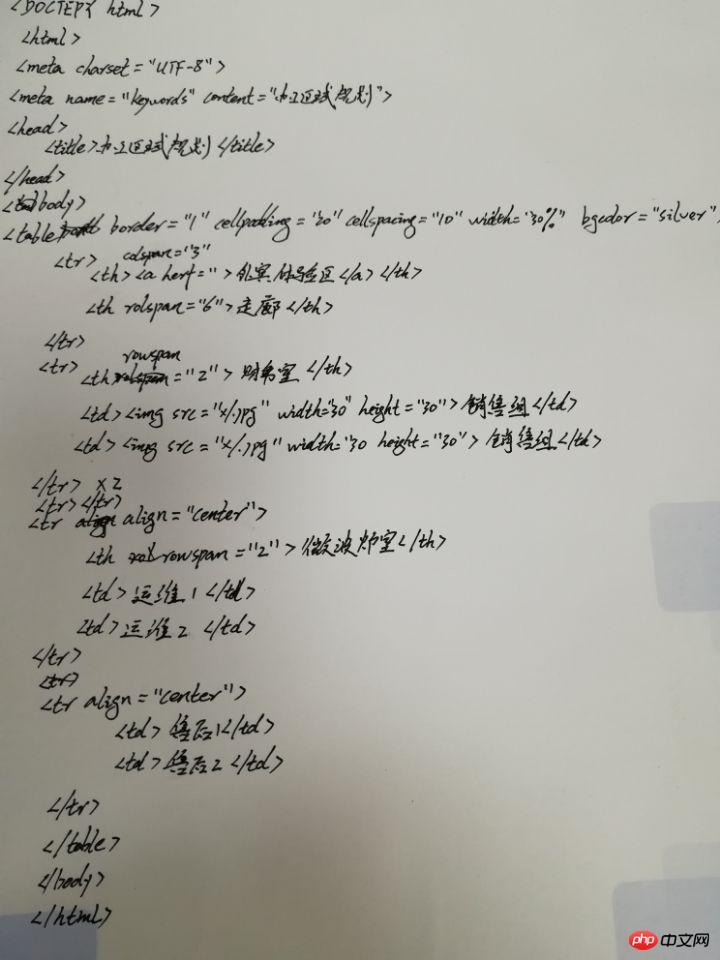 <DOCTEPY html>
<html>
<meta charset="UTF-8">
<meta name="keywords" content="办工区域规划">
<head>
<title>办工区域规划</title>
</head>
<body>
<table border="1" cellpadding="20" cellspacing="10" width="30%" bgcolor="silver">
<tr> colspan="3"
<th><a herf=''>外宾体验区</a></th>
<th rolspan="6">走廊</th>
</tr>
<tr> rowspan
<th ="2"> 财务室 </th>
<td><img src="x/.jpg" width="30" height="30">销售组</td>
<td><img src="x/.jpg" width="30 height="30">销售组</td>
</tr> x2
<tr></tr>
<tr align="center">
<th rowspan="2">微波炉室</th>
<td>运维1</td>
<td>运维2 </td>
</tr>
<tr align="center">
<td>售后1</td>
<td>售后2</td>
</tr>
</table>
</body>
</html>
php 中文网